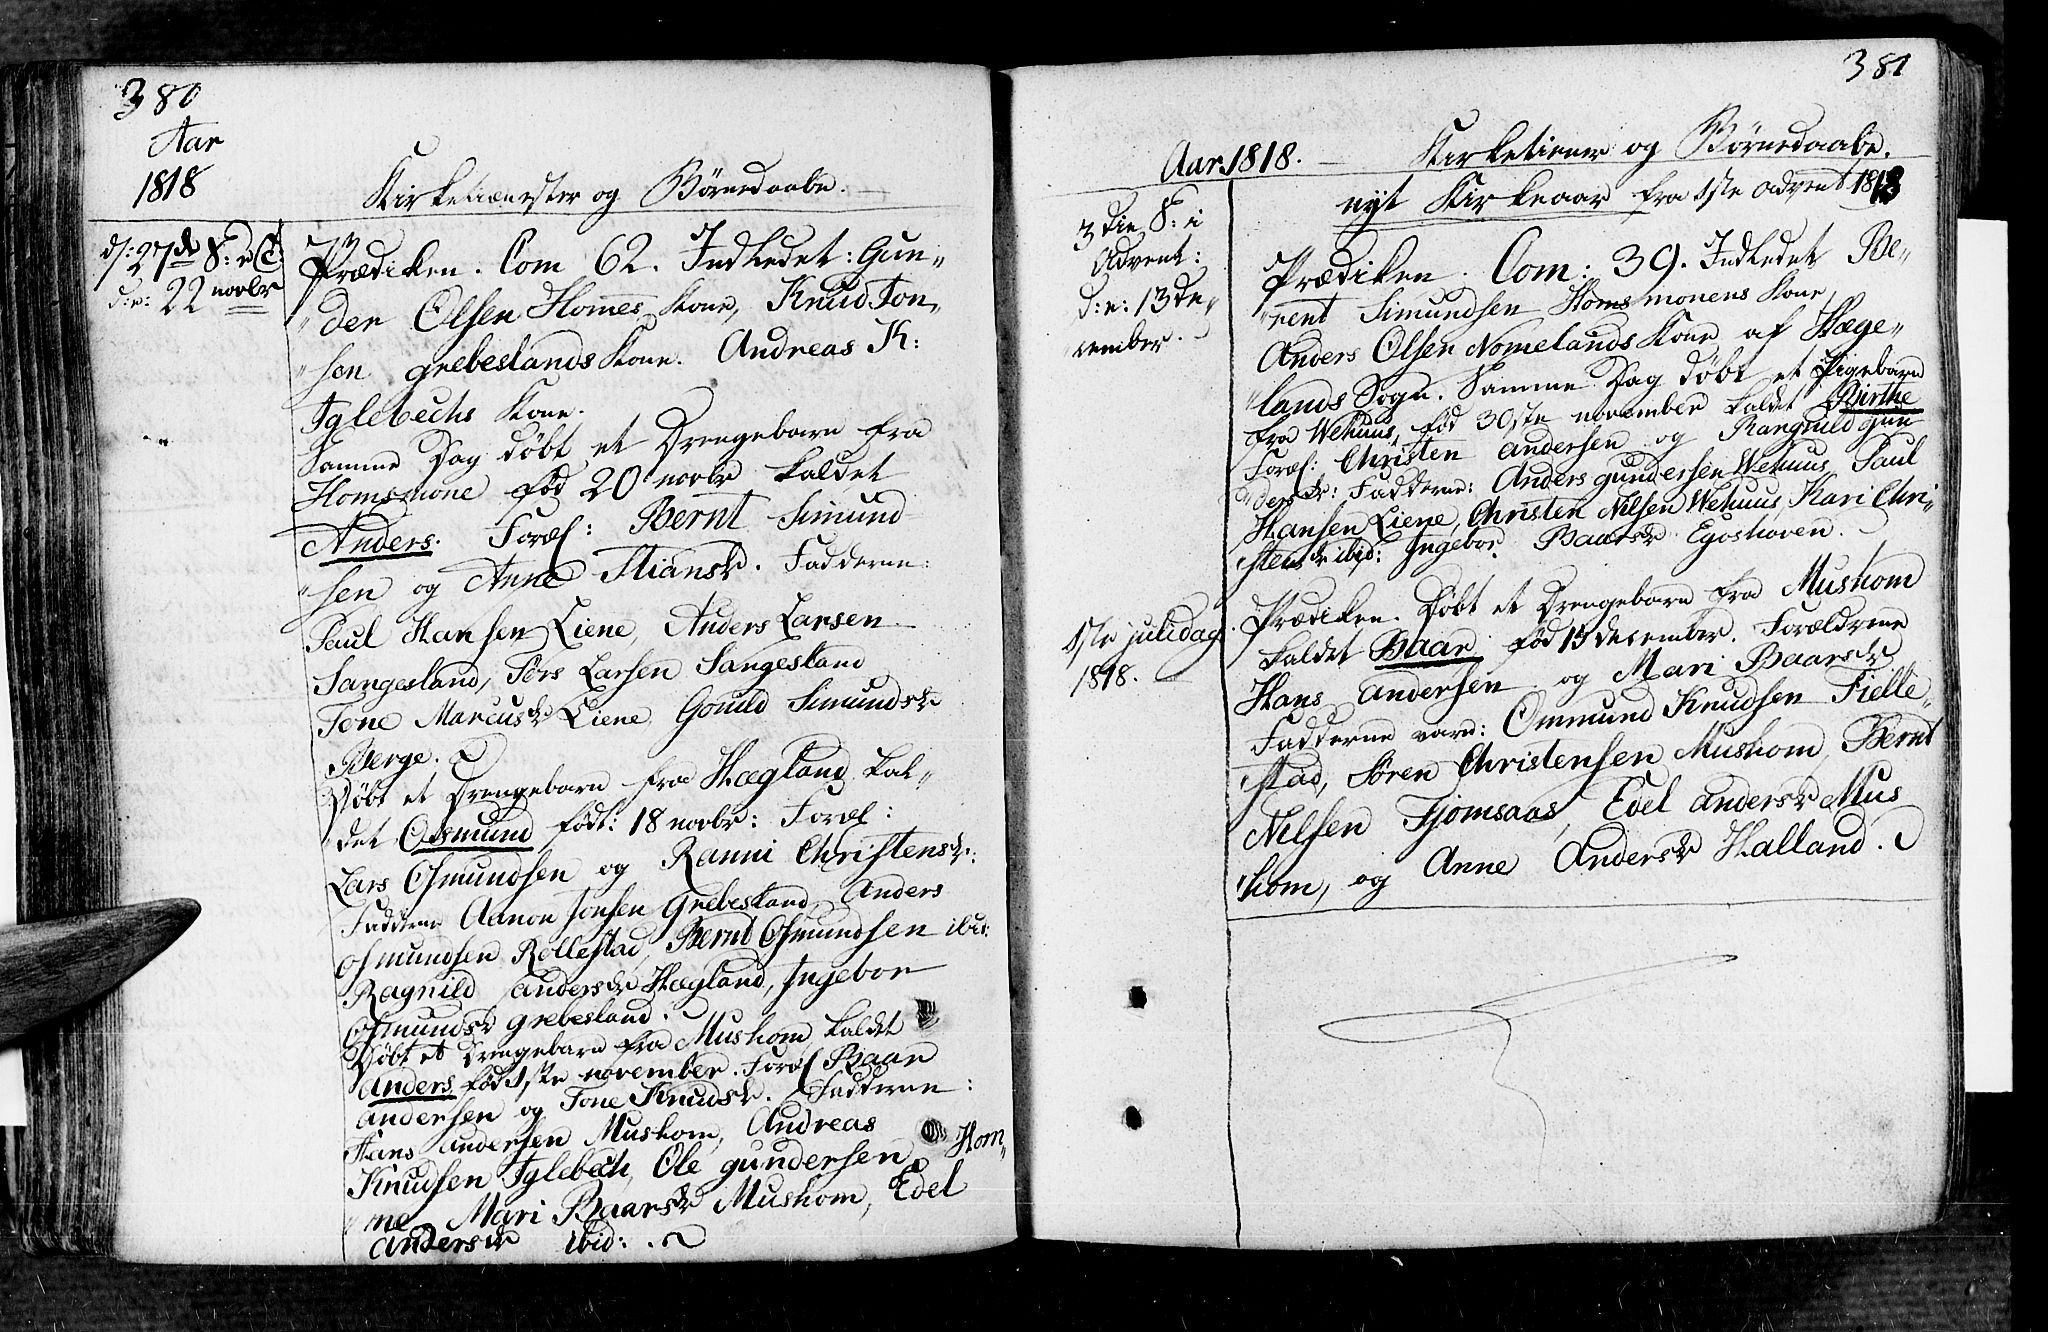 380
Aar
1818
Kirketienester og Børnedaabe.
d: 27de S: e: T:
d: e: 22 novbr
Prædiken. Com 62. Indledet: Gun„
„der Olsen Hommes Kone, Knud Ton„
„sen grebeslands Kone. Andreas K:
Iglebechs Kone.
Samme Dag døbt et Drengebarn fra
Homsmone fød 20 novbr kaldet
Anders. Foræl: Bernt Simund
„sen og Anne Stiansdr. Fadderne:
Paul Hansen Liene, Anders Larsen
Sangesland, Tørs Larsen Sangesland
Tone Marcusdr Liene, Gonild Simundsdr
Berge.
Døbt et Drengebarn fra Hægland kal„
„det Osmund født: 18 novbr: Foræl:
Lars Osmundsen og Ranni Christensdr:
Fadderne Aanon Jonsen Grebesland, Anders
Osmundsen Rellestad, Bernt Osmundsen ibid:
Ragnild Andersdr Hægland, Ingebor
Osmundsdr grebesland.
Døbt et Drengebarn fra Mushom kaldet
Anders, fød 1ste november. Foræl Baar
Andersen og Tone Knudsdr. Fadderne:
Hans Andersen Mushom, Andreas
Knudsen Iglebech, Ole gundersen Hom„
„me Mari Baarsdr Mushom, Edel
Andersdr ibid:
381
Aar 1818. — Kirketiener og Børnedaabe.
nyt Kirkeaar fra 1ste advent 1818
3die S: i
Advent:
d: e: 13 de„
cember.
Prædiken. Com: 39. Indledet Be„
„rent Simundsen Homsmonens Kone,
Anders Olsen Nomelands Kone af Hæge„
„lands Sogn. Samme Dag døbt et Pigebarn
fra Wehuus, fød 30ste november kaldet Birthe
Foræl: Christen Andersen og Rangnild Gun
„dersdr: Fadderne: Anders gundersen Wehuus, Paul
Hansen Liene, Christen Nilsen Wehuus, Kari Chri„
„stensdr ibid: Ingebor Baarsdr Egoshoven.
1ste juledag
1818.
Prædiken. Døbt et Drengebarn fra Mushom
kaldet Baar, fød 13 december. Forældrene
Hans Andersen og Mari Baarsdr
Fadderne vare: Ommund Knudsen Fielle„
„stad, Søren Christensen Mushom, Bernt
Nilsen Fjomsaas, Edel Andersdr Mus
„hom, og Anne Andersdr Halland.